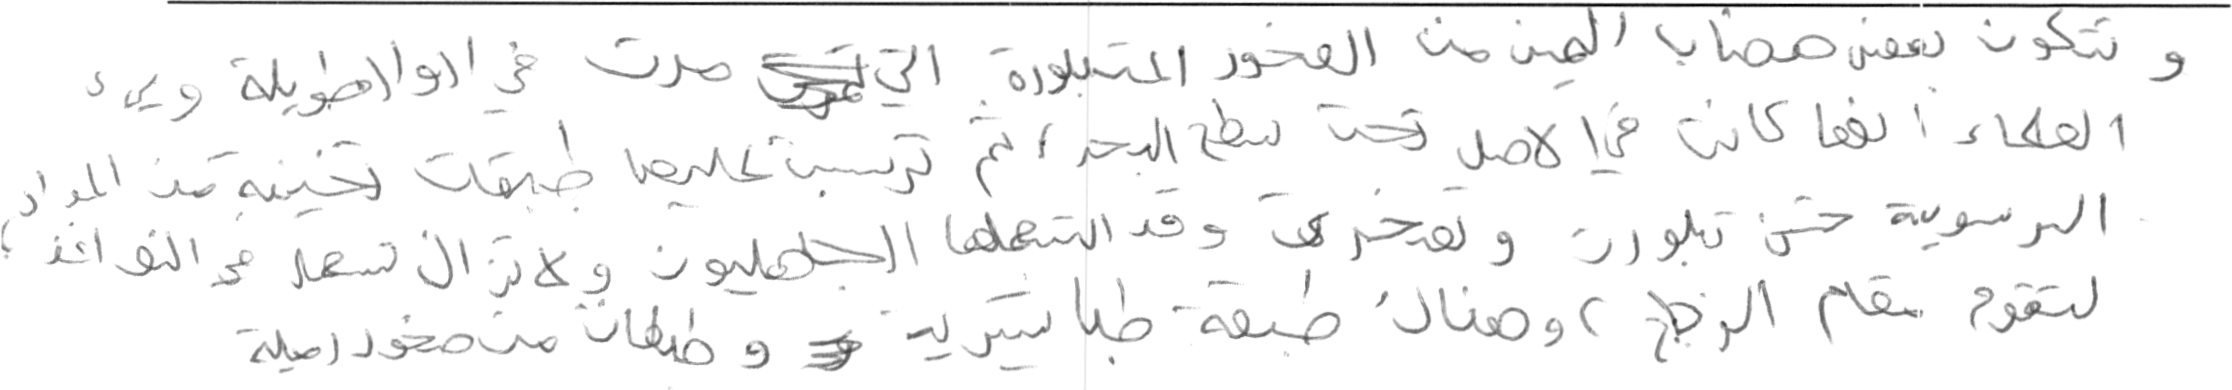 و تتكون بعض هضاب اليمن من الصخور المتبلورة التي مرت في ادوار طويلة ويرى
العلماء انها كانت في الاصل تحت سطح البحر ، ثم ترسبت عليها طبقات ثخينة من المواد
الرسوبية حتى تبلورت و تصخرت وقد استعملها الجاهليون و لا تزال تستعمل في النوافذ ،
لتقوم مقام الزجاج ، وهناك طبقة طباشيرية و طبقات من صخور رملية